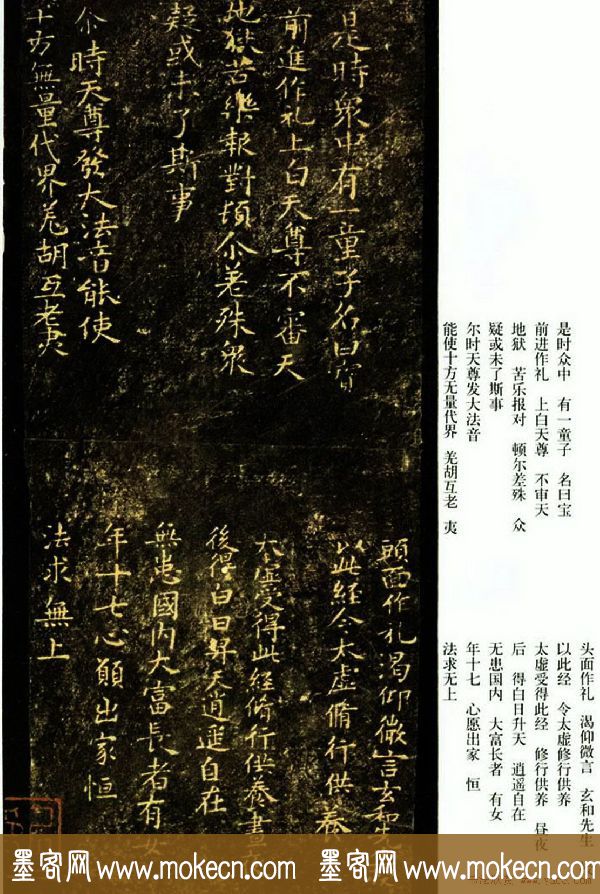 是時衆中有一童子名曰寶
前進作礼上白天尊不審天
地獄苦樂報對頓尒差殊衆
疑或未了斯事
尒時天尊發大法音能使
十方無量代界羌胡互老夷
頭面作礼渴仰微言玄和先
以此經令太虛脩行供養
太虛受得此經脩行供養晝
後得白日昇天逍遥自在
無患國内大富長者有女
年十七心願出家恒
法求無上
是时众中　有一童子　名曰宝
前进作礼　上白天尊　不审天
地狱　苦乐报对　顿尔差殊　众
疑或未了斯事
尔时天尊发大法音
能使十方无量代界　羌胡互老　夷
头面作礼　渴仰微言　玄和先生
以此经　令太虚修行供养
太虚受得此经　修行供养　昼夜
后　得白日升天　逍遥自在
无患国内　大富长者　有女
年十七　心愿出家　恒
法求无上
墨客网 www.mokecn.com 墨客网 www.mokecn.com